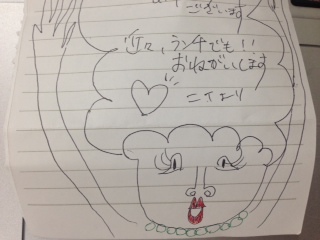 ございます
近々、ランチでも!!
おねがいします